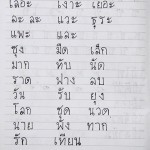 เลอะ เงาะ เยอะ
ละ ละ แวะ ธุระ
แพะ และ
ซุง มืด เล็ก
มาก ทับ นัด
ราด ฟาง ลบ
วัน รับ ยุง
โลก ชุด นวด
นาย พัง ทาก
รัก เทียน